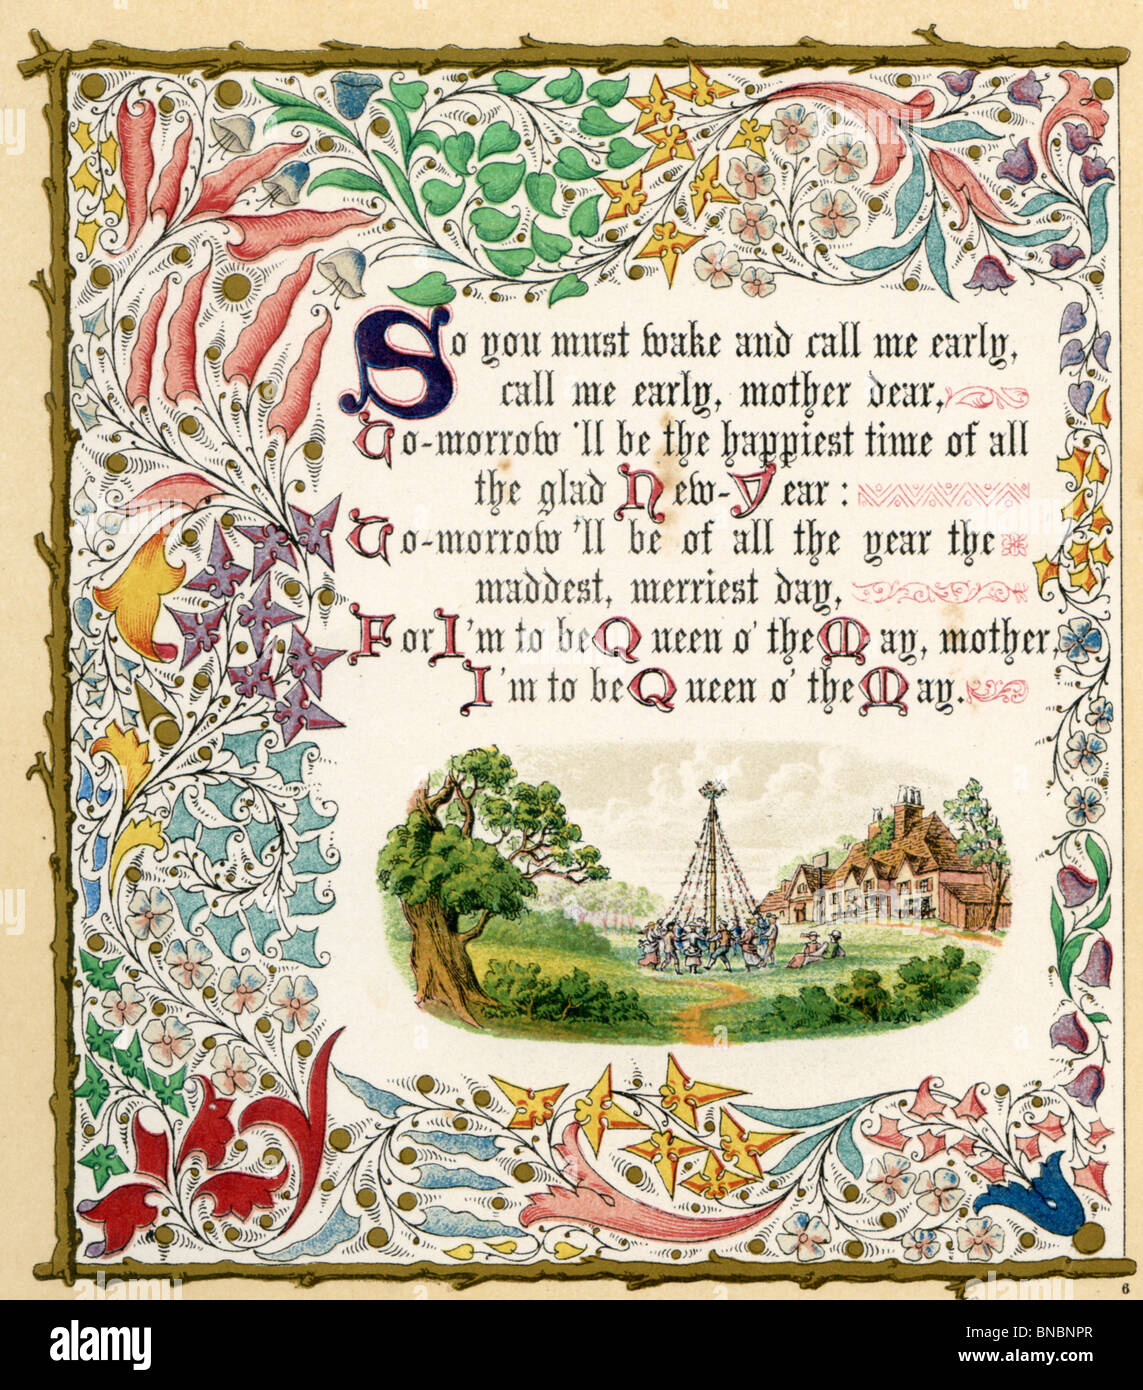 So you must wake and call me early,
call me early, mother dear,
To-morrow 'll be the happiest time of all
the glad New-Year:
To-morrow 'll be of all the year the
maddest, merriest day,
For I'm to be Queen o' the May, mother,
I'm to be Queen o' the May.
6
alamy
Image ID: BNBNPR
www.alamy.com